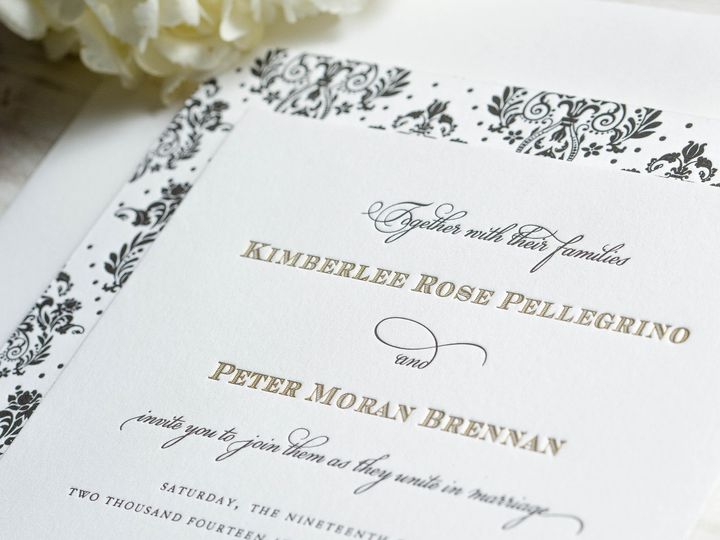 Together with their families
KIMBERLEE ROSE PELLEGRINO
and
PETER MORAN BRENNAN
invite you to join them as they unite in marriage
SATURDAY, THE NINETEENTH
TWO THOUSAND FOURTEEN